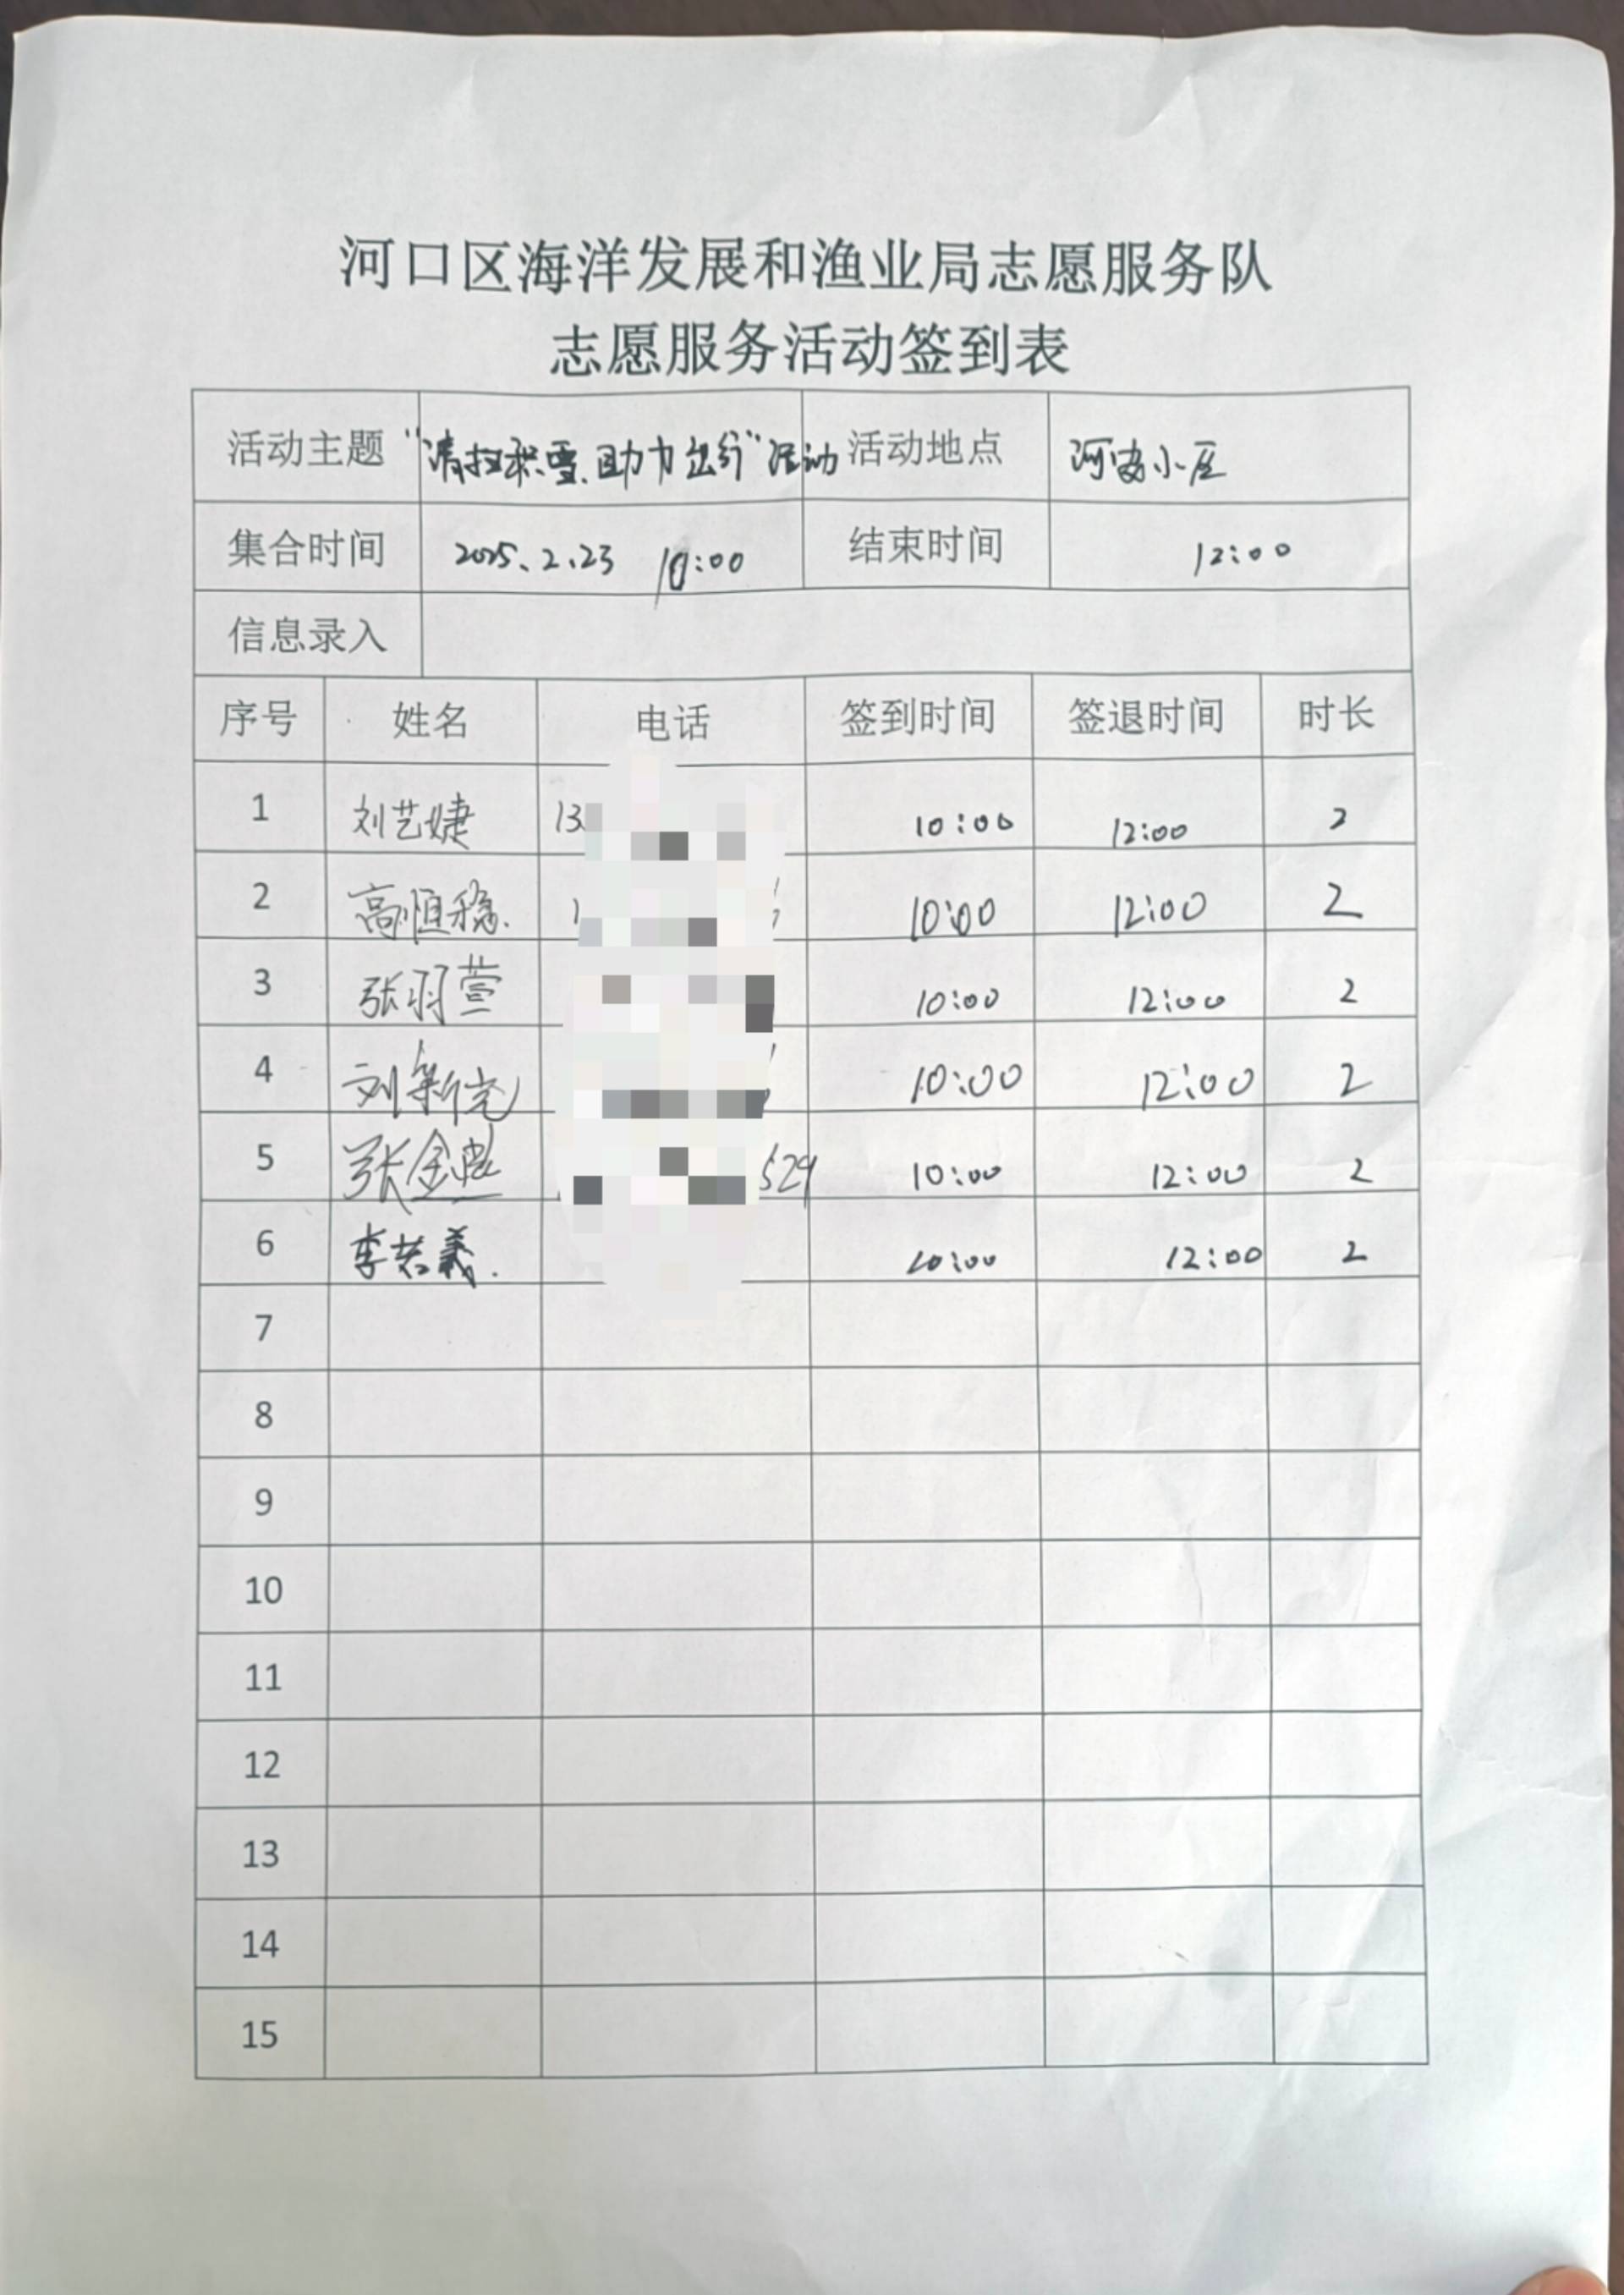 河口区海洋发展和渔业局志愿服务队
志愿服务活动签到表
活动主题 “清扫积雪、助力出行”活动 活动地点 河安小区
集合时间 2025.2.23 10:00 结束时间 12:00
信息录入
序号 姓名 电话 签到时间 签退时间 时长
1 刘艺婕 13 10:00 12:00 2
2 高恒稳. 1 10:00 12:00 2
3 张羽萱 10:00 12:00 2
4 刘新尧 10:00 12:00 2
5 张金 529 10:00 12:00 2
6 李若义. 10:00 12:00 2
7
8
9
10
11
12
13
14
15